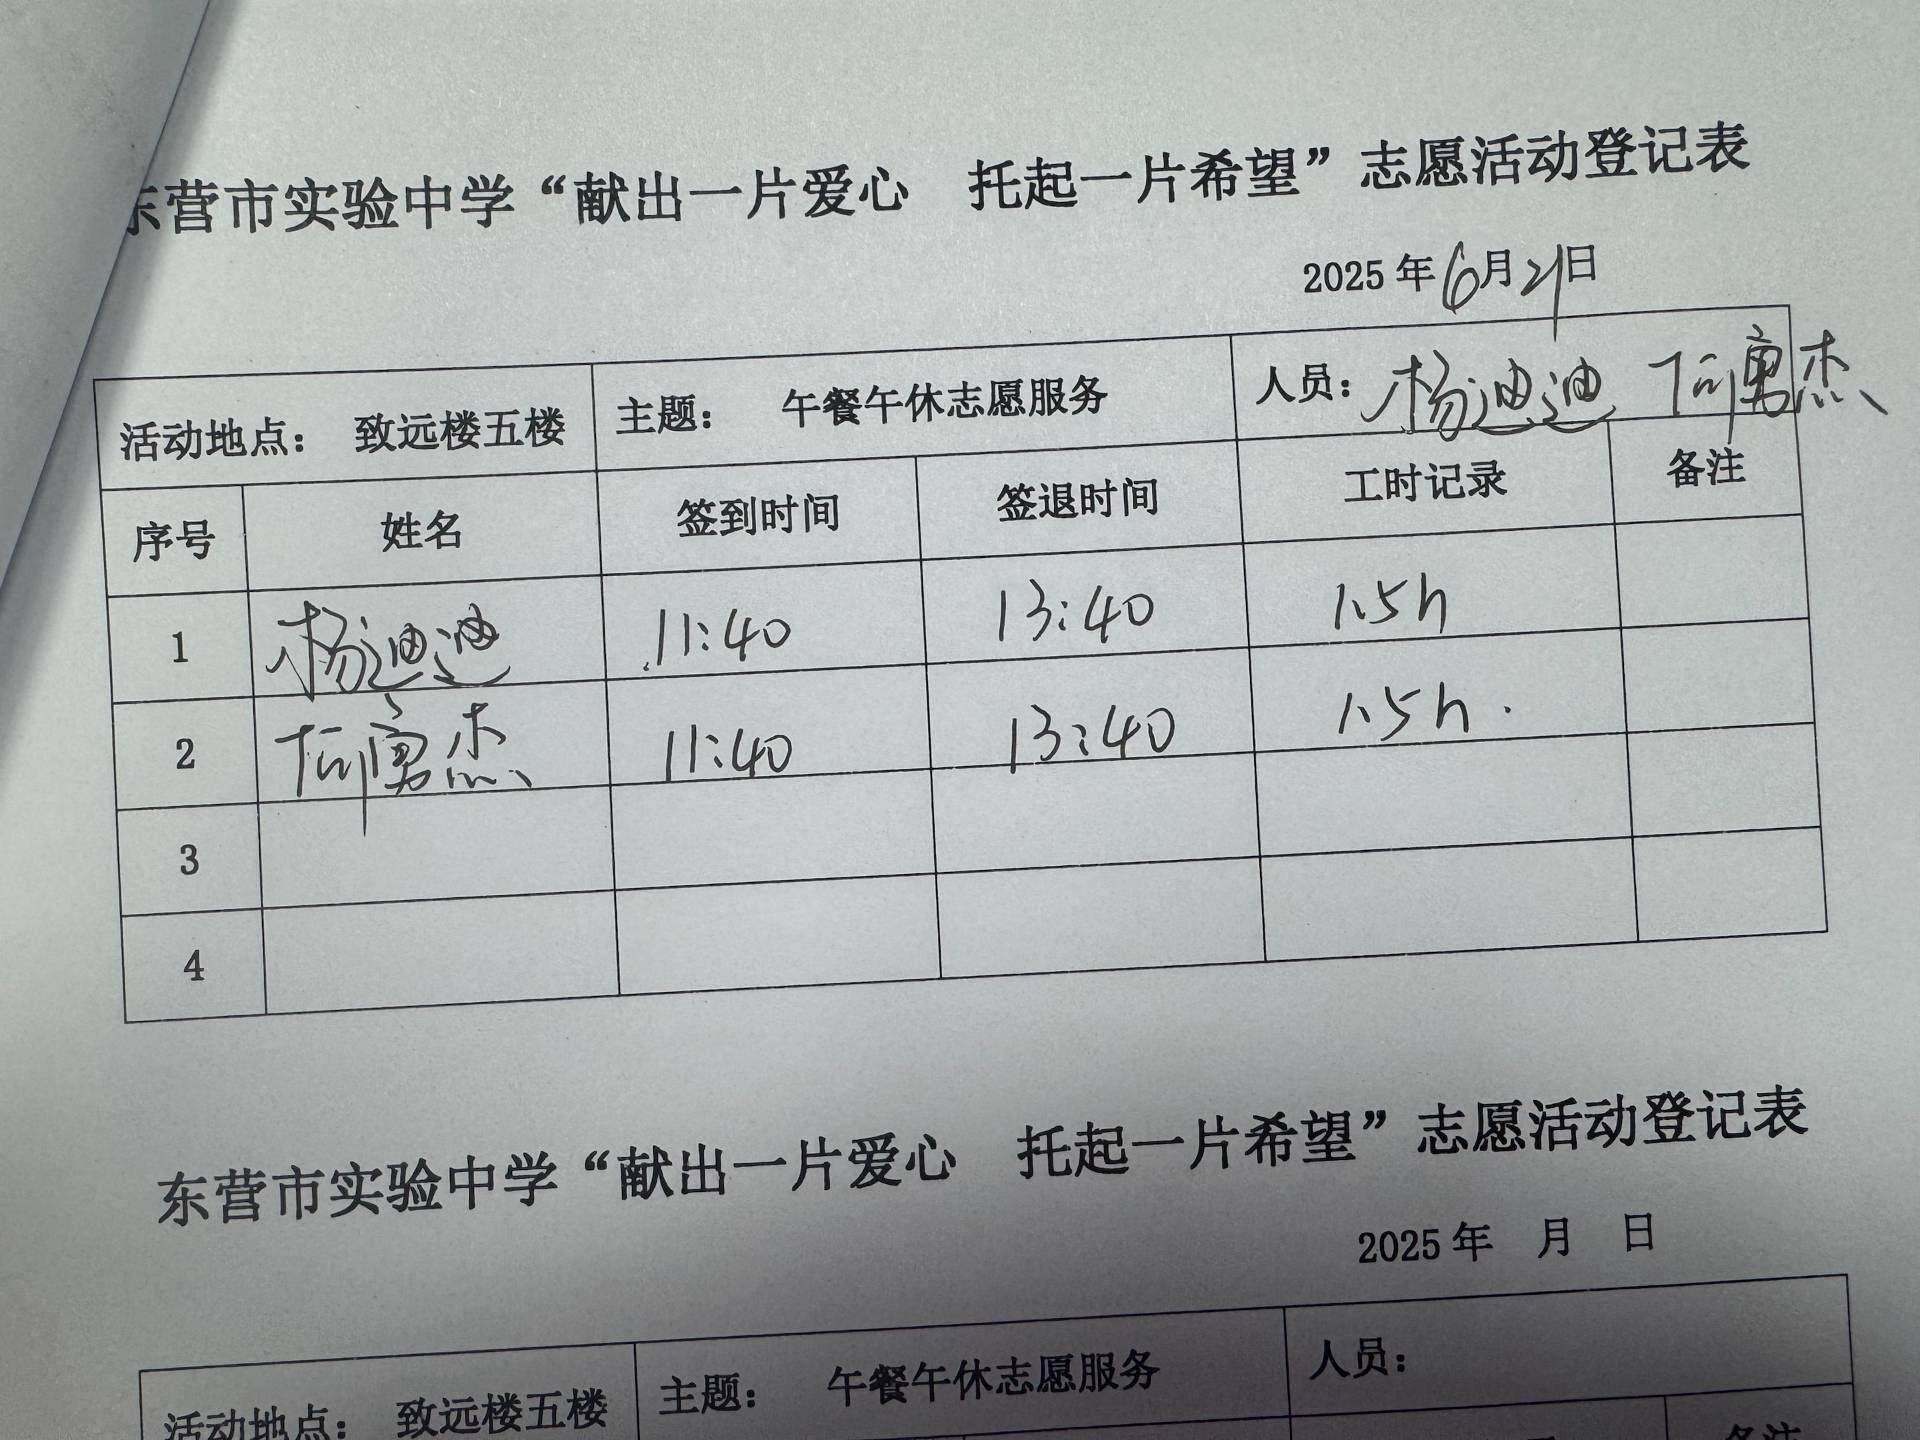 东营市实验中学“献出一片爱心 托起一片希望”志愿活动登记表
2025年6月21日
活动地点： 致远楼五楼 主题： 午餐午休志愿服务 人员：杨迪迪 勇杰
序号 姓名 签到时间 签退时间 工时记录 备注
1 杨迪迪 11:40 13:40 1.5h
2 勇杰 11:40 13:40 1.5h.
3
4
东营市实验中学“献出一片爱心 托起一片希望”志愿活动登记表
2025年 月 日
活动地点： 致远楼五楼 主题： 午餐午休志愿服务 人员：
备注